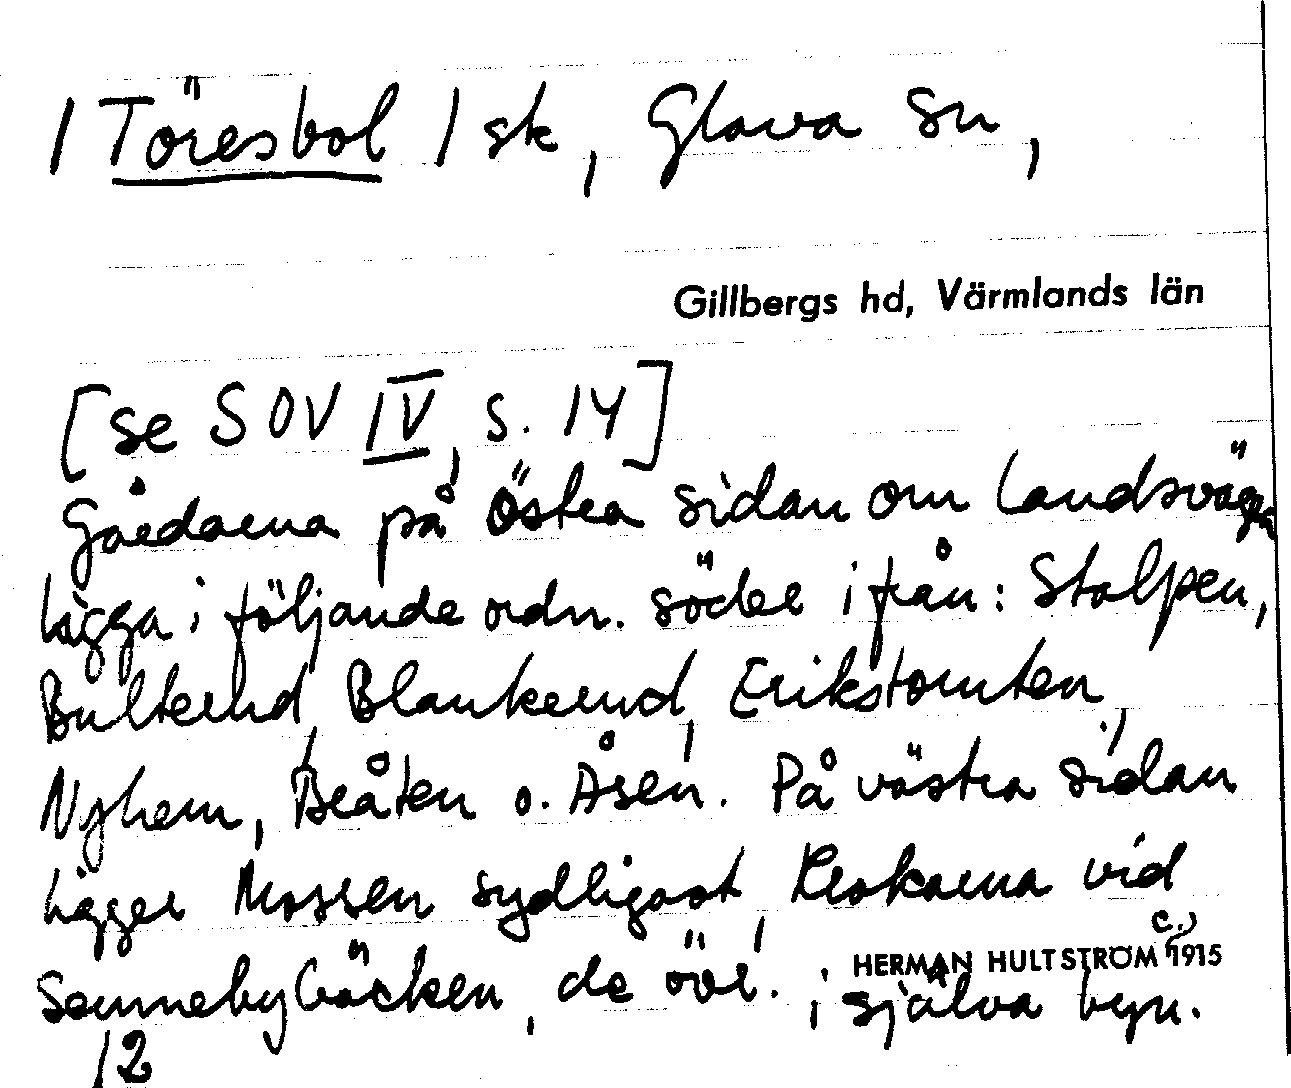 / Töresbol / sk, Glava sn,
Gillbergs hd, Värmlands län
[se SOV IV, s. 14]
Gårdarna på östra sidan om landsvägen
ligga i följande ordn. söder ifrån: Stolpen,
Bulterud, Blankerud, Erikstomten,
Nyhem, Bråten o. Åsen. På västra sidan
ligger Mossen sydligast, Krokarna vid
Sennebybäcken, de övr. i själva byn.
HERMAN HULTSTRÖM c. 1915
/2